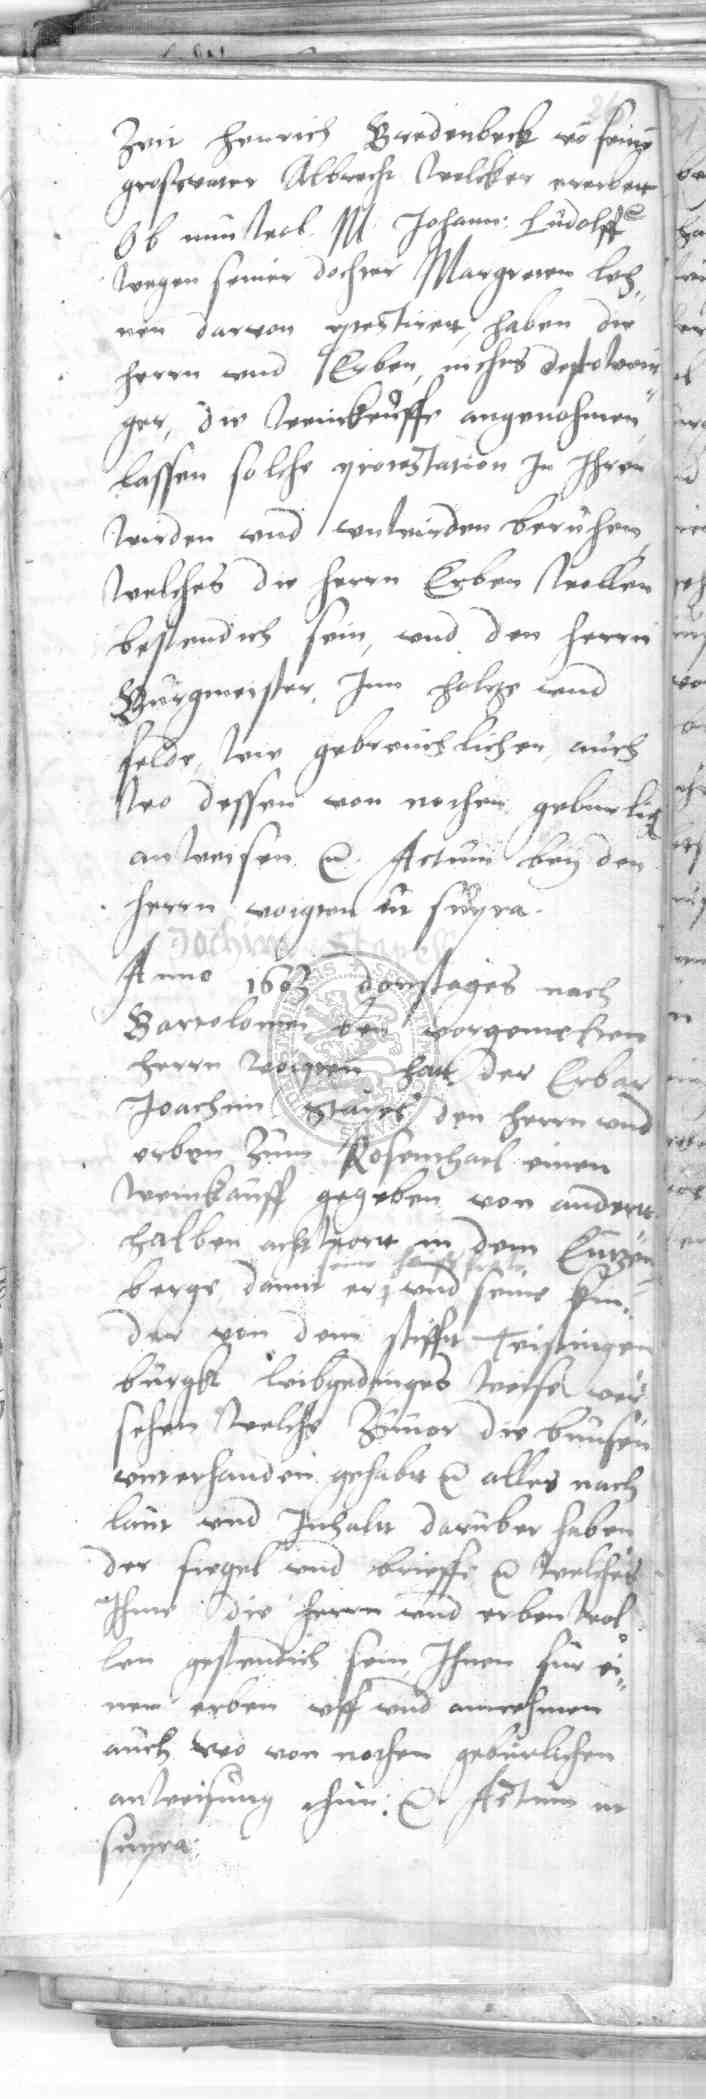 Zeit Henrich Bredenbeck vo seine
grosvatter Albrecht Welcker ererbett
Ob nun wol M Johann: Ludolff
wegen seiner dochter Margreten leh,,
nen darvon protestirett, haben die
herrn und Erben, nichts destoweni
ger, die weinkeuffe angenohmen,
lassen solche protestation In Ihren
wirden und unwirden beruhen,
welches die herrn Erben wollen
bestendich sein, und den herrn
Burgmeister, Inn holtze und
felde, wie gebreuchlichen, auch
wo dessen von nothen geburlig
anweisen Actum bey den
herrn voigten ut supra.
Joachim
Anno 1603 donstages nach
Bartolomei bei vorgemelten
herrn voigten hatt der Erbar
Joachim den herrn und
erben zum Rosenthael einen
weinkauff gegeben von andertt
halben achtwort in dem Lutzen
seine
berge damit er, und seine kin,,
der von dem stifft Teistingen
burgk leibgedinges weise ver
sehen welche zuuor die
unterhanden gehabtt alles nach
laut und Inhaltt daruber haben
der siegel und brieffe welches
Ihme die herrn und erben wol
len gestendich sein Ihnen fur ei,,
nen erben uff und annehmen
auch wo von nothen geburlichen
anweisung thun: Actum ut
supra.